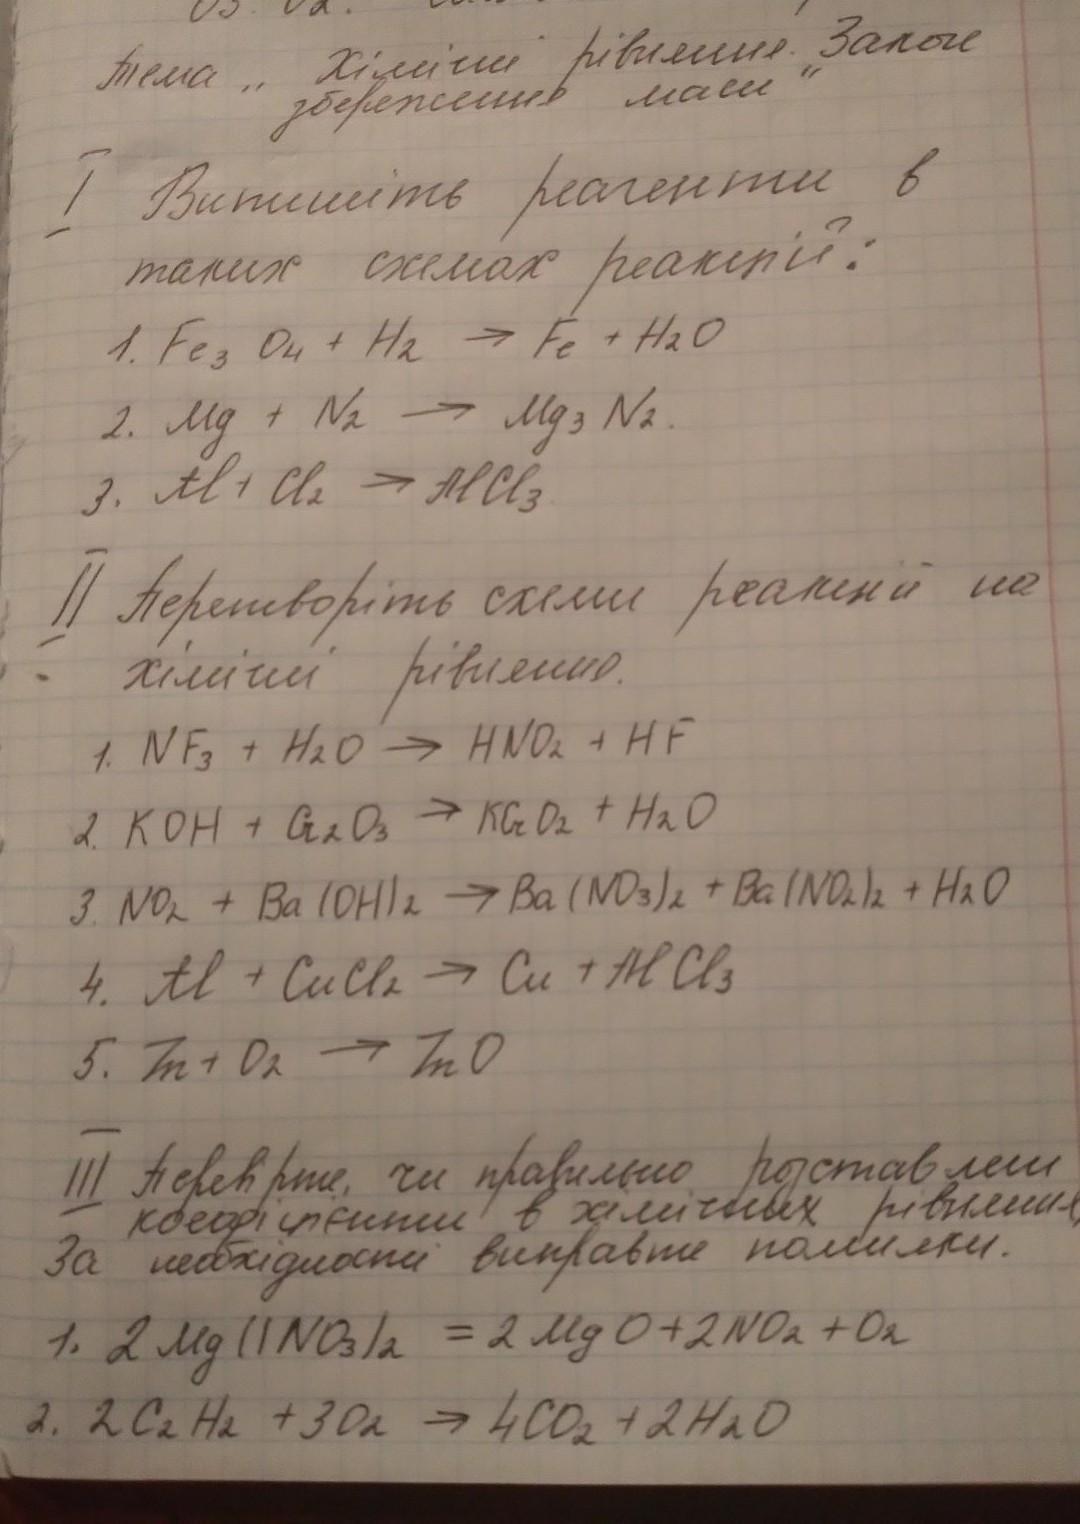 03. 02.
Тема „ Хімічні рівняння. Закон
збереження маси"
I Випишіть реагенти в
таких схемах реакцій:
1. Fe₃O₄ + H₂ → Fe + H₂O
2. Mg + N₂ → Mg₃N₂.
3. Al + Cl₂ → AlCl₃
II Перетворіть схеми реакцій на
хімічні рівняння.
1. NF₃ + H₂O → HNO₂ + HF
2. KOH + Cr₂O₃ → KCrO₂ + H₂O
3. NO₂ + Ba(OH)₂ → Ba(NO₃)₂ + Ba(NO₂)₂ + H₂O
4. Al + CuCl₂ → Cu + AlCl₃
5. Zn + O₂ → ZnO
III Перевірте, чи правильно розставлені
коефіцієнти в хімічних рівняннях,
За необхідності виправте помилки.
1. 2Mg(NO₃)₂ = 2MgO + 2NO₂ + O₂
2. 2C₂H₂ + 3O₂ → 4CO₂ + 2H₂O